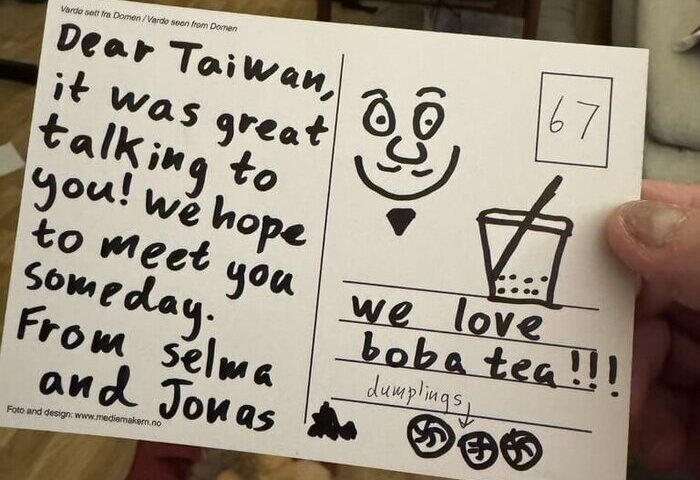 Vardø sett fra Domen / Vardø seen from Domen
Dear Taiwan,
it was great
talking to
you! We hope
to meet you
someday.
From Selma
and Jonas
Foto and design: www.mediemakern.no
67
we love
boba tea!!!
dumplings